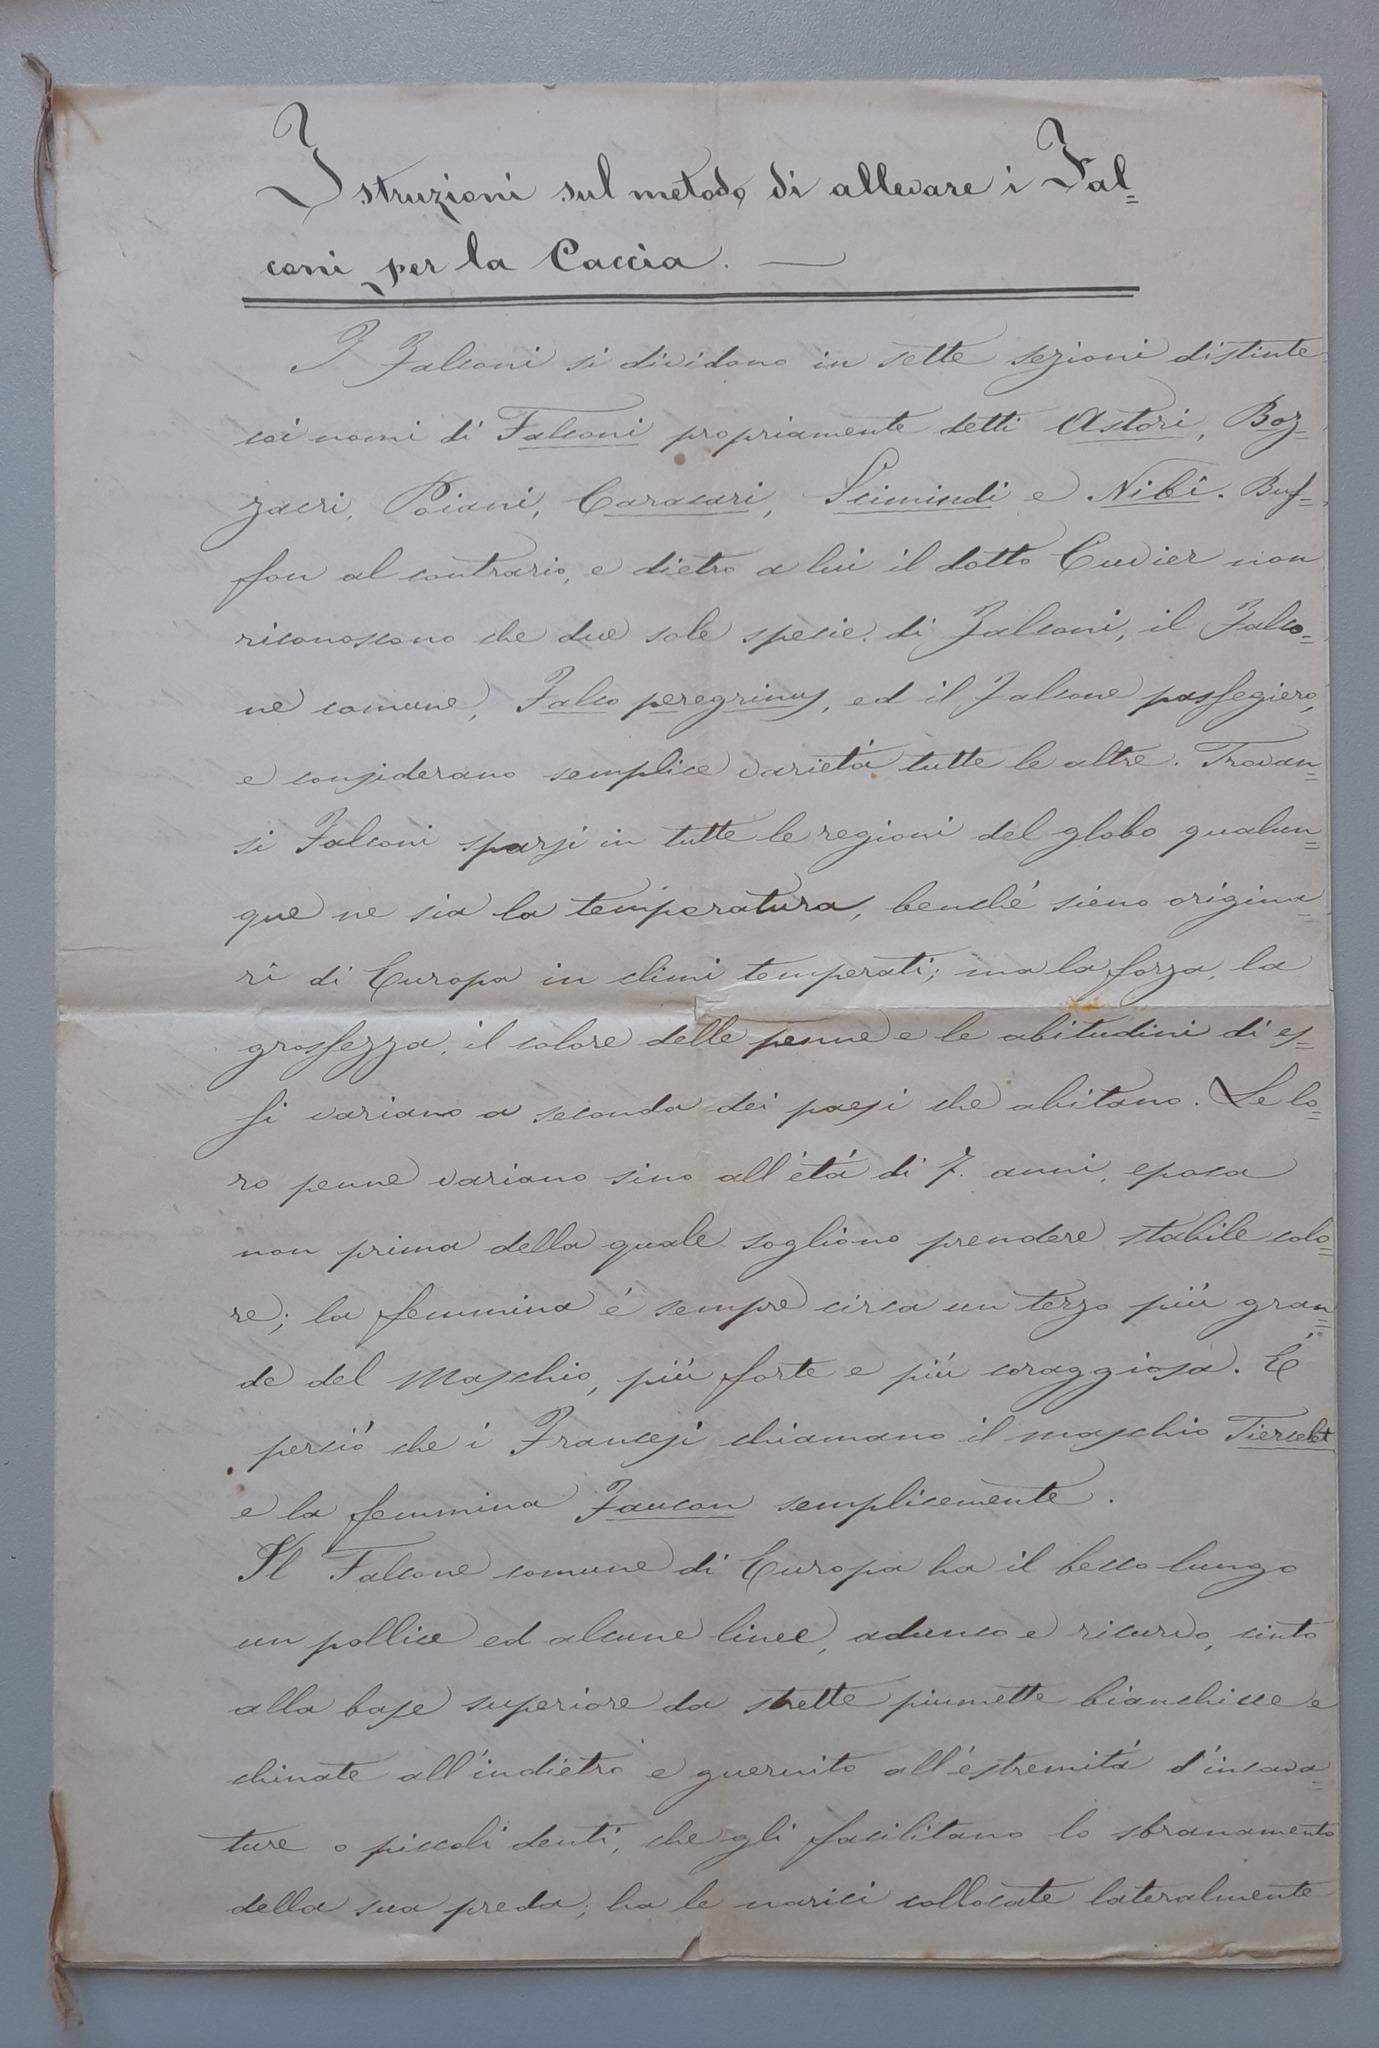 Istruzioni sul metodo di allevare i Fal=
coni per la Caccia. —
I Falconi si dividono in sette sezioni distinte
coi nomi di Falconi propriamente detti Astori, Boz=
zacri, Poiani, Caracari, Scimindi e Nibî. Buf=
fon al contrario, e dietro a lui il dotto Cuvier non
riconoscono che due sole specie di Falconi, il Falco=
ne comune, Falco peregrinus, ed il Falcone passegiero,
e considerano semplice varietá tutte le altre. Trovan=
si Falconi sparsi in tutte le regioni del globo qualun=
que ne sia la temperatura, benché sieno origina=
rî di Europa in climi temperati; ma la forza, la
grossezza, il colore delle penne e le abitudini di es=
si variano a seconda dei paesi che abitano. Le lo=
ro penne variano sino all'étá di 7. anni, epoca
non prima della quale sogliono prendere stabile colo=
re; la femmina é sempre circa un terzo piú gran=
de del Maschio, piú forte e piú coraggiosa. É
perció che i Francesi chiamano il maschio Tiercelet
e la femmina Faucon semplicemente.
Il Falcone comune di Europa ha il becco lungo
un pollice ed alcune linee, adunco e ricurvo, cinto
alla base superiore da strette piumette bianchicce e
chinate all'indietro e guernito all'éstremitá d'incava=
ture o piccoli denti, che gli facilitano lo sbranamento
della sua preda; ha le narici collocate lateralmente